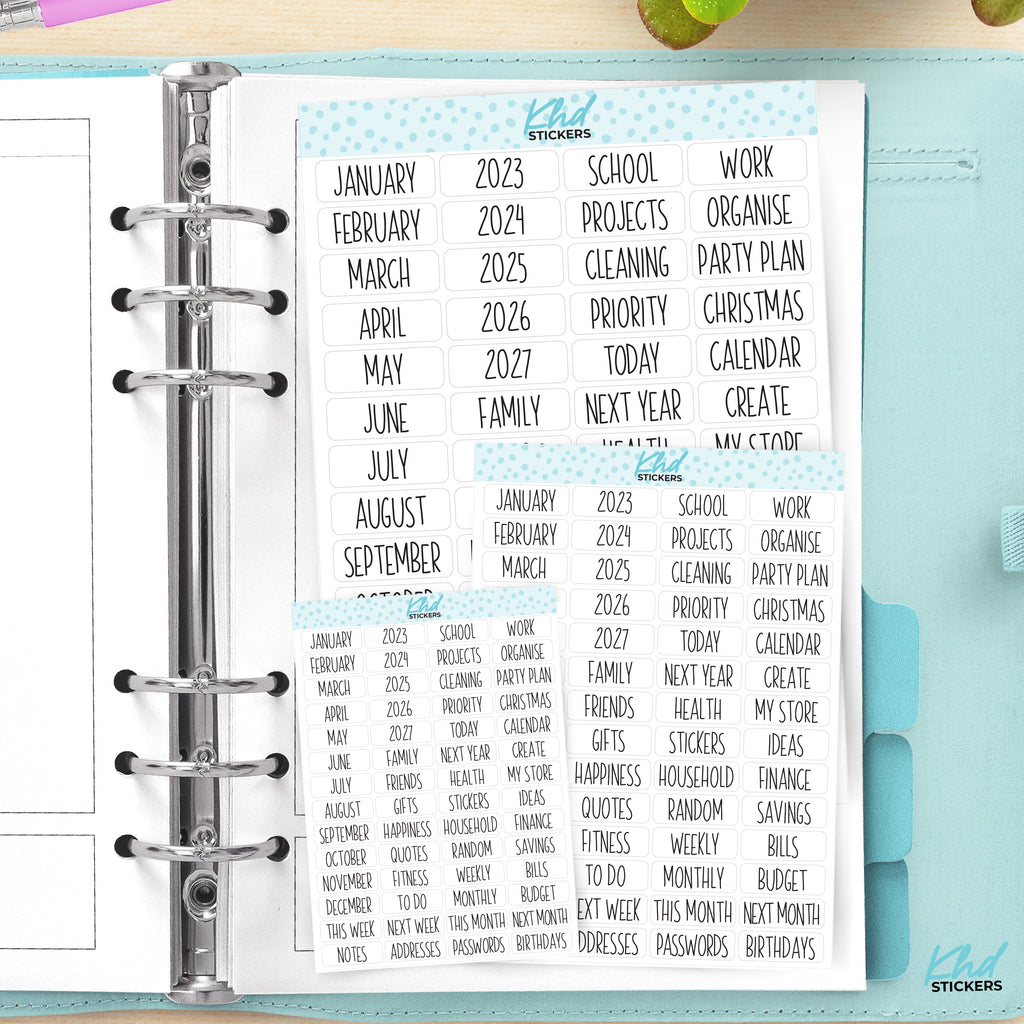 Khd
STICKERS
JANUARY 2023 SCHOOL WORK
FEBRUARY 2024 PROJECTS ORGANISE
MARCH 2025 CLEANING PARTY PLAN
APRIL 2026 PRIORITY CHRISTMAS
MAY 2027 TODAY CALENDAR
JUNE FAMILY NEXT YEAR CREATE
JULY HEALTH MY STORE
AUGUST
SEPTEMBER
OCTOBER
Khd
STICKERS
JANUARY 2023 SCHOOL WORK
FEBRUARY 2024 PROJECTS ORGANISE
MARCH 2025 CLEANING PARTY PLAN
2026 PRIORITY CHRISTMAS
2027 TODAY CALENDAR
FAMILY NEXT YEAR CREATE
FRIENDS HEALTH MY STORE
GIFTS STICKERS IDEAS
HAPPINESS HOUSEHOLD FINANCE
QUOTES RANDOM SAVINGS
FITNESS WEEKLY BILLS
TO DO MONTHLY BUDGET
EXT WEEK THIS MONTH NEXT MONTH
DDRESSES PASSWORDS BIRTHDAYS
Khd
STICKERS
JANUARY 2023 SCHOOL WORK
FEBRUARY 2024 PROJECTS ORGANISE
MARCH 2025 CLEANING PARTY PLAN
APRIL 2026 PRIORITY CHRISTMAS
MAY 2027 TODAY CALENDAR
JUNE FAMILY NEXT YEAR CREATE
JULY FRIENDS HEALTH MY STORE
AUGUST GIFTS STICKERS IDEAS
SEPTEMBER HAPPINESS HOUSEHOLD FINANCE
OCTOBER QUOTES RANDOM SAVINGS
NOVEMBER FITNESS WEEKLY BILLS
DECEMBER TO DO MONTHLY BUDGET
THIS WEEK NEXT WEEK THIS MONTH NEXT MONTH
NOTES ADDRESSES PASSWORDS BIRTHDAYS
Khd
STICKERS